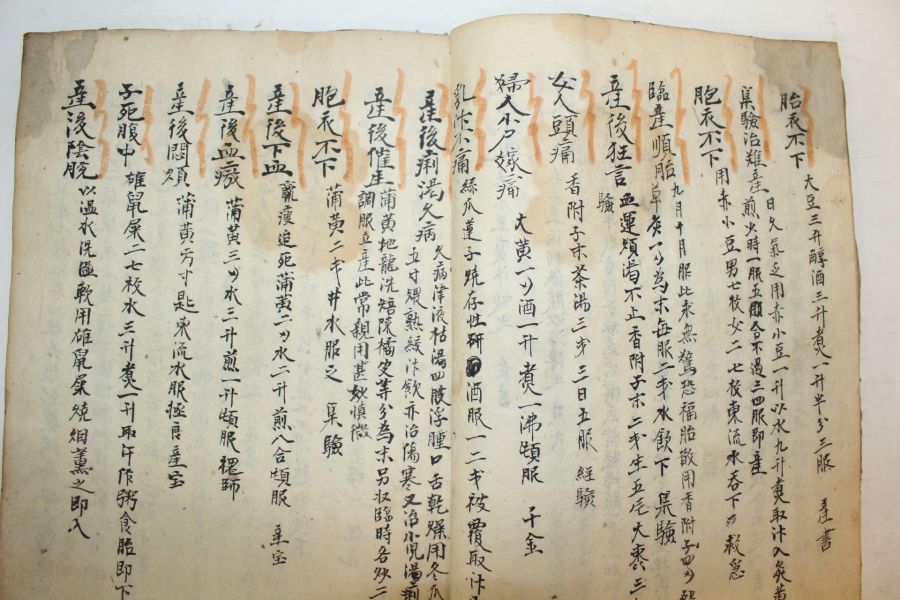 胎衣不下 大豆三升醇酒三升煮一升半分三服 產書
日久氣乏用赤小豆一升以水九升煮取汁入炙黃
集驗治難產煎少時一服五 合不過三四服即產
胞衣不下 用赤小豆男七枚女二七枚東流水吞下 救急
臨產順胎 九月十月服此永無驚恐福胎散用香附子四
草炙一 為末每服二戔水飲下 集驗
產後狂言 血運煩渴不止香附子末二戔生姜大棗三
驗
女人頭痛 香附子末茶湯三戔三日五服 經驗
婦人小戶嫁痛 大黃一 酒一升煮一沸頓服 千金
乳汁不痛 絲瓜蓮子燒存性研 酒服一二戔被覆取汁
產後痢渴久病 久病津液枯渴四肢浮腫口舌乾燥用冬瓜
五寸煨熟絞汁飲亦治傷寒又治小兒渴痢
產後催生 蒲黃地龍洗焙陳橘皮等分為末另收臨時各炒二
調服立產此常親用甚妙 微
胞衣不下 蒲黃二戔井水服之 集驗
產後下血 羸瘦迨死蒲黃二 水二升煎八合頓服 產宝
產後血癥 蒲黃三 水三升煎一升頓服 師
產後悶煩 蒲黃方寸匙東流水服極良 產宝
子死腹中 雄鼠屎二七枚水三升煮一升取汁作粥食胎即下
產後陰脫 以温水洗 軟用雄鼠屎燒烟薰之即入